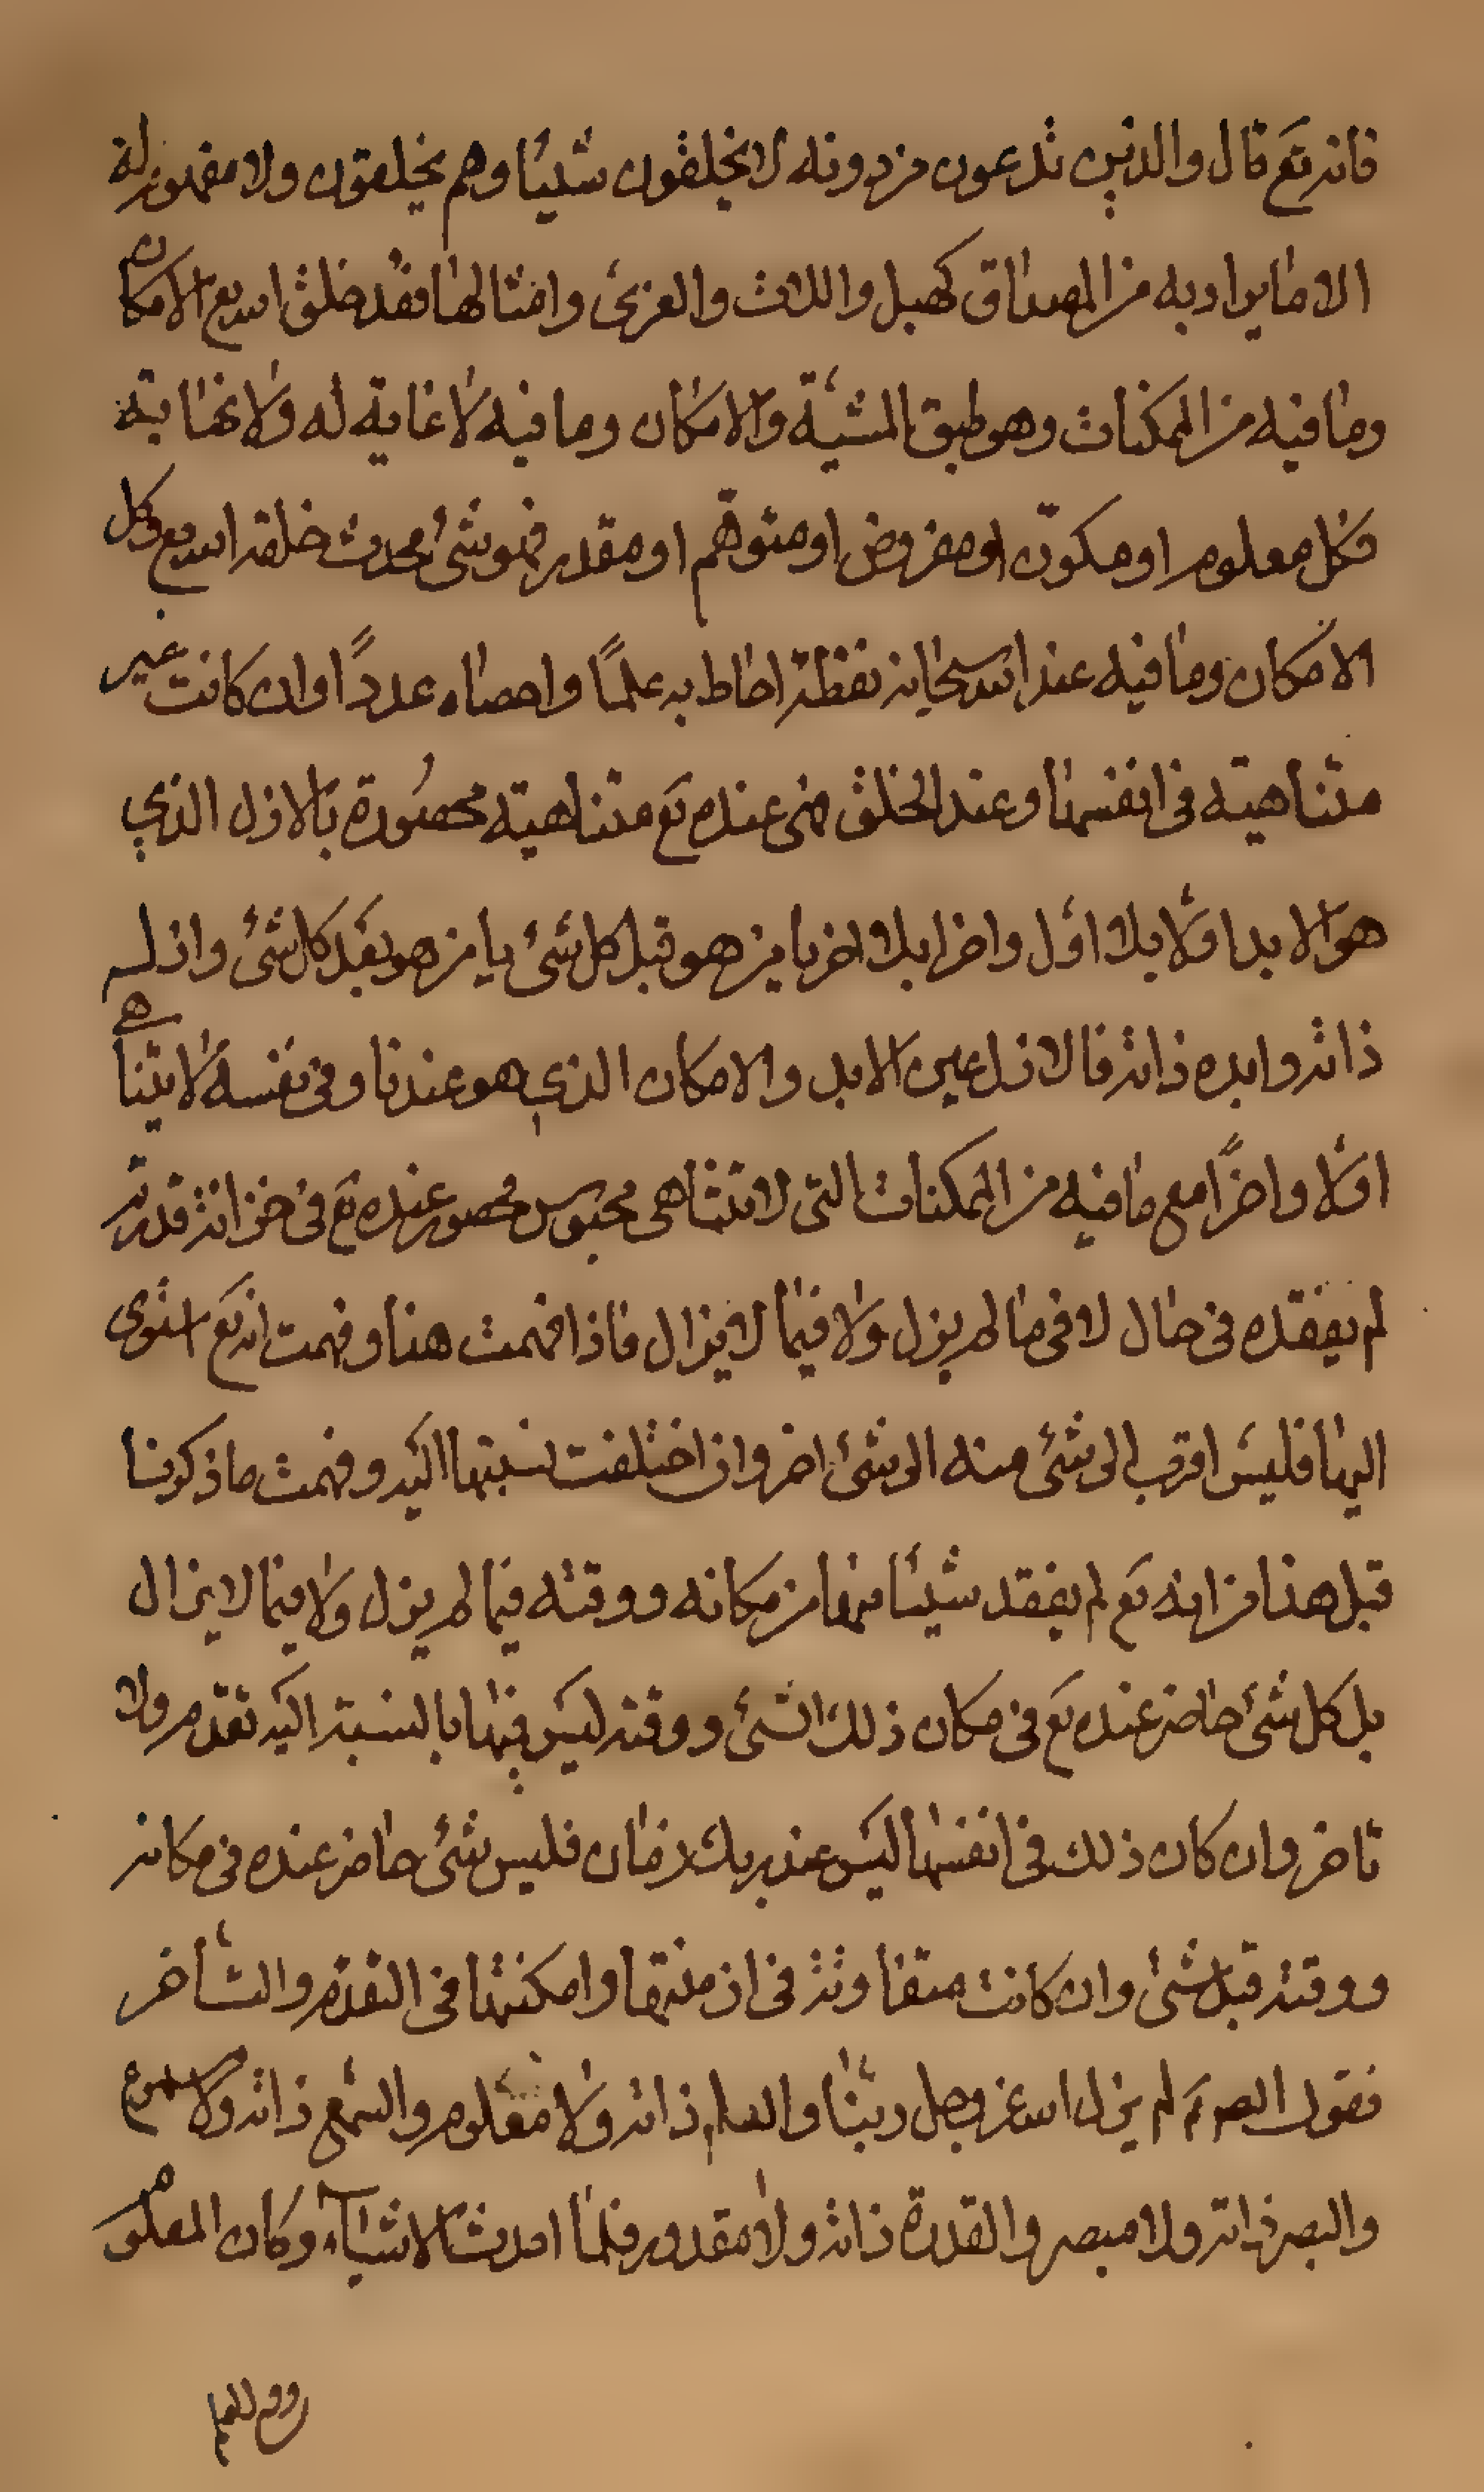 فانه تع قال والذين تدعون من دونه لا يخلقون شيئا وهم يخلقون ولا مفهوم له
الا ما يراد به من المصداق كهبل واللات والعزى وامثالها فقد خلق الله تع الامكان
وما فيه من الممكنات وهو طبق المشية والامكان وما فيه لا غاية له ولا نهاية
فكل معلوم او مكون او مفروض او متوهم او مقدر فهو شئ محدث خلقه الله تع وكل
الامكان وما فيه عند الله سبحانه نقطة احاط به علمًا واحصاه عددًا وان كانت غير
متناهية في انفسها وعند الخلق فهى عنده تع متناهية محصورة بالازل الذي
هو الابد اولا بلا اول واخرا بلا اخر يا من هو قبل كل شئ يا من هو بعد كل شئ وازله
ذاته وابده ذاته فالازل عين الابد والامكان الذي هو عندنا وفي نفسه لا يتناهى
اولا واخرًا مع ما فيه من الممكنات التى لا تتناهى محبوس محصور عنده تع في خزانة قدرته
لم يفقده في حال لا في ما لم يزل ولا فيما لا يزال فاذا فهمت هذا وفهمت انه تع استوى
اليها فليس اقرب الى شئ منه الى شئ اخر وان اختلفت نسبتها اليه وفهمت ما ذكرنا
قبل هذا من انه تع لم يفقد شيئا منها من مكانه ووقته فيما لم يزل ولا فيما لا يزال
بل كل شئ حاضر عنده تع في مكان ذلك الشئ ووقته ليس فيها بالنسبة اليه تقدم ولا
تاخر وان كان ذلك في انفسها ليس عند ربك زمان فليس شئ حاضر عنده في مكانه
ووقته قبل شئ وان كانت متفاوتة في ازمنتها وامكنتها في التقدم والتأخر
فقول الصم لم يزل الله عز وجل ربنا والعلم ذاته ولا معلوم والسمع ذاته ولا مسموع
والبصر ذاته ولا مبصر والقدرة ذاته ولا مقدور فلما احدث الاشياء وكان المعلوم